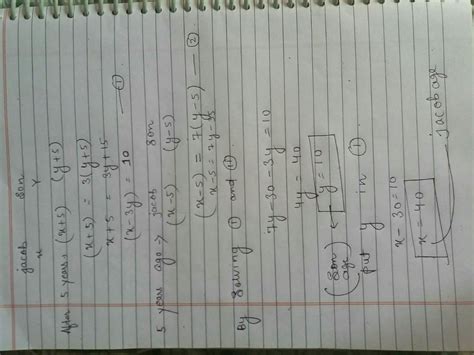 jacob son
x y
After 5 years → (x+5) (y+5)
(x+5) = 3(y+5)
x+5 = 3y+15
(x-3y) = 10 — ①
5 years ago → jacob son
(x-5) (y-5)
(x-5) = 7(y-5) — ②
x-5 = 7y-35
By solving ① and ②
7y-30-3y=10
4y = 40
(son age) ← y = 10
put y in ①
x-30=10
x = 40
jacob age